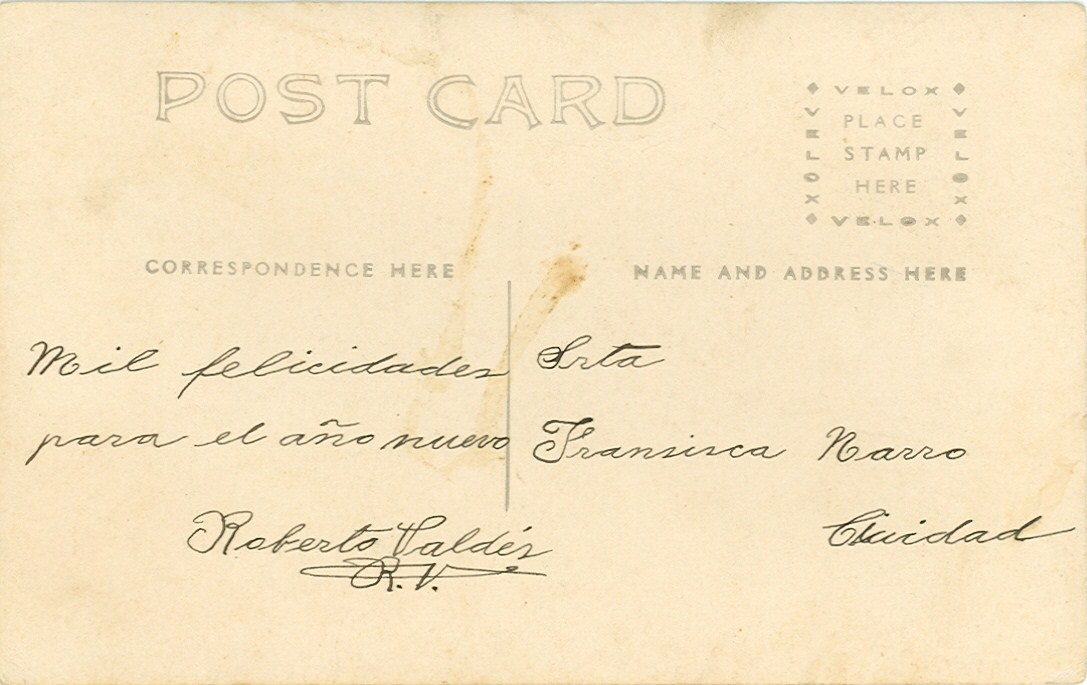 POST CARD
VELOX
VELOX
VELOX
VELOX
PLACE
STAMP
HERE
CORRESPONDENCE HERE
NAME AND ADDRESS HERE
Mil felicidades
para el año nuevo
Roberto Valdés
R.V.
Srta
Fransisca Narro
Ciuidad